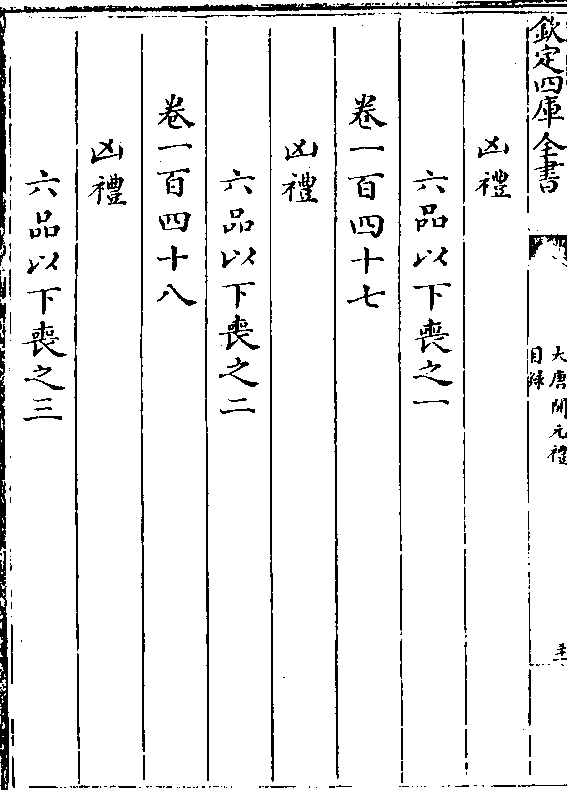 欽定四庫全書
大唐開元禮
目錄
凶禮
六品以下喪之一
卷一百四十七
凶禮
六品以下喪之二
卷一百四十八
凶禮
六品以下喪之三